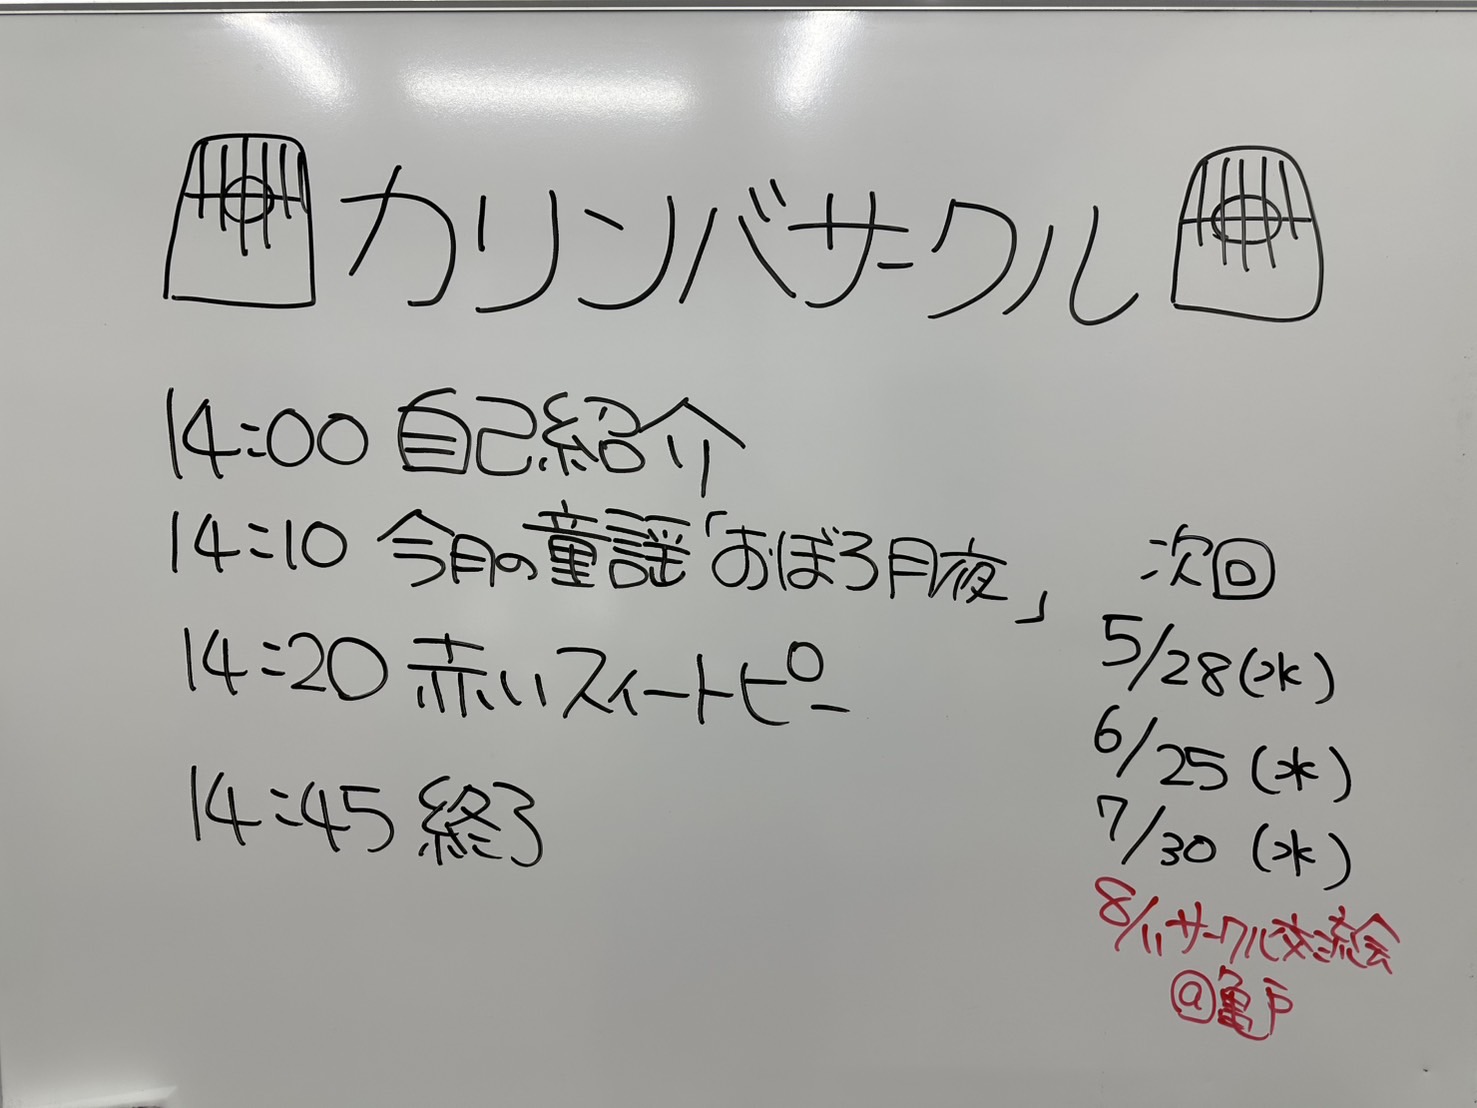 カリンバサークル
14:00 自己紹介
14:10 今月の童謡「おぼろ月夜」
14:20 赤いスィートピー
14:45 終了
次回
5/28(水)
6/25(水)
7/30(水)
8/11サークル交流会
@亀戸